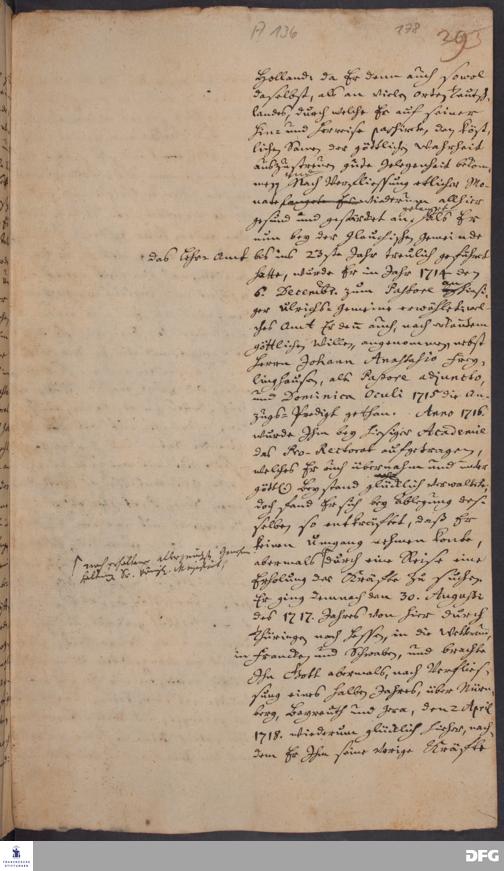 136
178
293
Holland, da Er denn auch sowol
daselbst, als an vielen Orten Teutsch-
landes, durch welche Er auf seiner
Hin- und Herreise passirete, den köst-
lichen Samen der göttlichen Wahrheit
auszustreuen gute Gelegenheit bekom-
men, und nach Verfliessung etlicher Mo-
nate wiederum allhier
gesund und gestärcket an gelanget. Als Er
nun bey der Glauchischen Gemeinde
das Lehr-Amt bis ins 23ste Jahr treulich geführet
hatte, wurde Er im Jahr 1714 den
6. Decembr. zum Pastore an hiesi-
ger Ulrichs-Gemeine erwählet, wel-
ches Amt Er denn auch, nach erkantem
göttlichen Willen, angenommen nebst
Herrn Johann Anastasio Frey-
linghausen, als Pastore adjuncto,
und Dominica Oculi 1715 die An-
zugs-Predigt gethan. Anno 1716.
wurde Ihm bey hiesiger Academie
das Pro-Rectorat aufgetragen,
welches Er auch übernahm und unter
göttl. Beystand glücklich verwaltete,
doch fand Er sich bey Ablegung des-
selben so entkräftet, daß Er
keinen Umgang nehmen konte,
nach erhaltener allergnädigsten
Sr. Königl. Majestät,
abermals durch eine Reise eine
Erholung der Kräfte zu suchen.
Er ging demnach den 30. Augusti
des 1717. Jahres von hier durch
Thüringen nach Hessen, in die Wetterau,
in Francken, und Schwaben, und brachte
Ihn Gott abermals, nach Verflies-
sung eines halben Jahres, über Nürn-
berg, Bayreuth und Gera, den 2 April
1718. wiederum glücklich hieher, nach-
dem Er Ihm seine vorige Kräfte
FRANCKESCHE
STIFTUNGEN
DFG